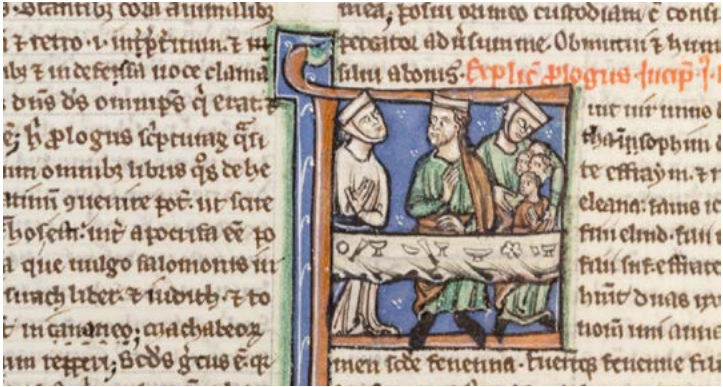 coram animalibꝫ
⁊ retro · i · in p̄t̄itum · ⁊ in
⁊ indefessa uoce clama
dn̄s ds̄ omnip̄s q̇ erat · ⁊
ē; h̄ ꝓlogus sc̄pturaꝝ q̄si
um omnibꝫ libris q̊s de he
uertim̄ pot̄ · ut scire
hos est · int̄ apocrifa eē po
a que uulgo salomonis in
sirach liber · ⁊ iudith · ⁊ to
t in canonico; machabeoꝝ
um repperi; Scd̄s grēcus ē · q
mea, posui ori meo custodiam c̄ consi
peccator adūsum me · Obmutui ⁊ hum
a bonis · Explic̄ ꝓlogus · Incip̄ · I ·
uit uir unus
sophim
te effraym · ⁊
elcana: filius ie
filii eliud · filii
filii suf · effrate
huit duas ux
nom̄ uni anna
men sc̄de fenenna · fuerūtqꝫ fenenne filii